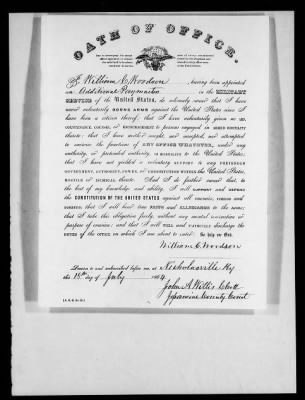 OATH OF OFFICE.
I, William C. Woodson, having been appointed
an Additional Paymaster in the MILITARY
SERVICE of the United States, do solemnly swear that I have
never voluntarily BORNE ARMS against the United States since I
have been a citizen thereof; that I have voluntarily given no AID,
COUNTENANCE, COUNSEL, or ENCOURAGEMENT to persons engaged in ARMED HOSTILITY
thereto; that I have neither sought, nor accepted, nor attempted
to exercise the functions of ANY OFFICE WHATEVER, under any
authority, or pretended authority, IN HOSTILITY to the United States;
that I have not yielded a voluntary SUPPORT to any PRETENDED
GOVERNMENT, AUTHORITY, POWER, or CONSTITUTION WITHIN the UNITED STATES,
HOSTILE or INIMICAL thereto. And I do further swear that, to
the best of my knowledge and ability, I will SUPPORT and DEFEND
the CONSTITUTION OF THE UNITED STATES against all enemies, FOREIGN and
DOMESTIC; that I will bear true FAITH and ALLEGIANCE to the same;
that I take this obligation freely, without any mental reservation or
purpose of evasion; and that I will WELL and FAITHFULLY discharge the
DUTIES of the OFFICE on which I am about to enter: So help me God.
William C. Woodson
Sworn to and subscribed before me, at Nicholasville Ky
this 18th day of July 1864.
John A Willis Clerk
Jessamine County Court